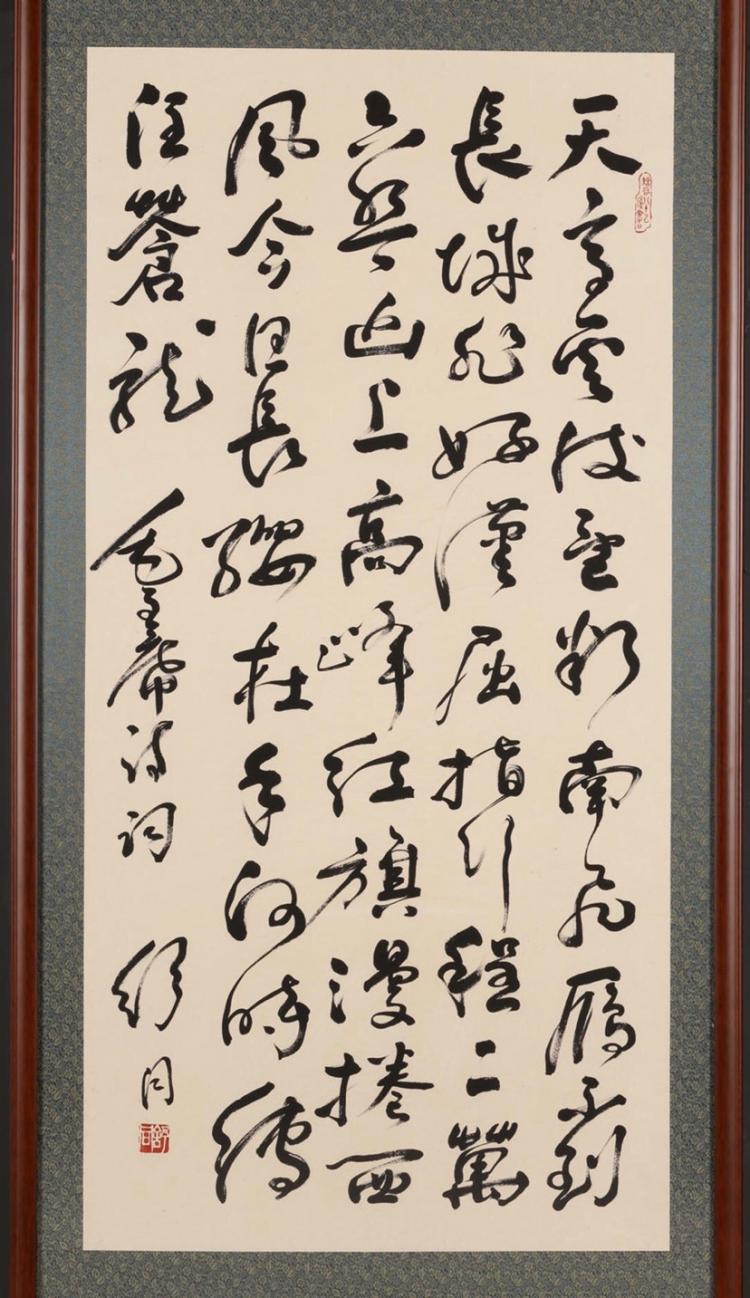 天高雲淡望斷南飛鴈不到
長城非好漢屈指行程二萬
六盤山上高峰紅旗漫捲西
風今日長纓在手何時縛
住蒼龍 毛主席詩詞 舒同
舒同